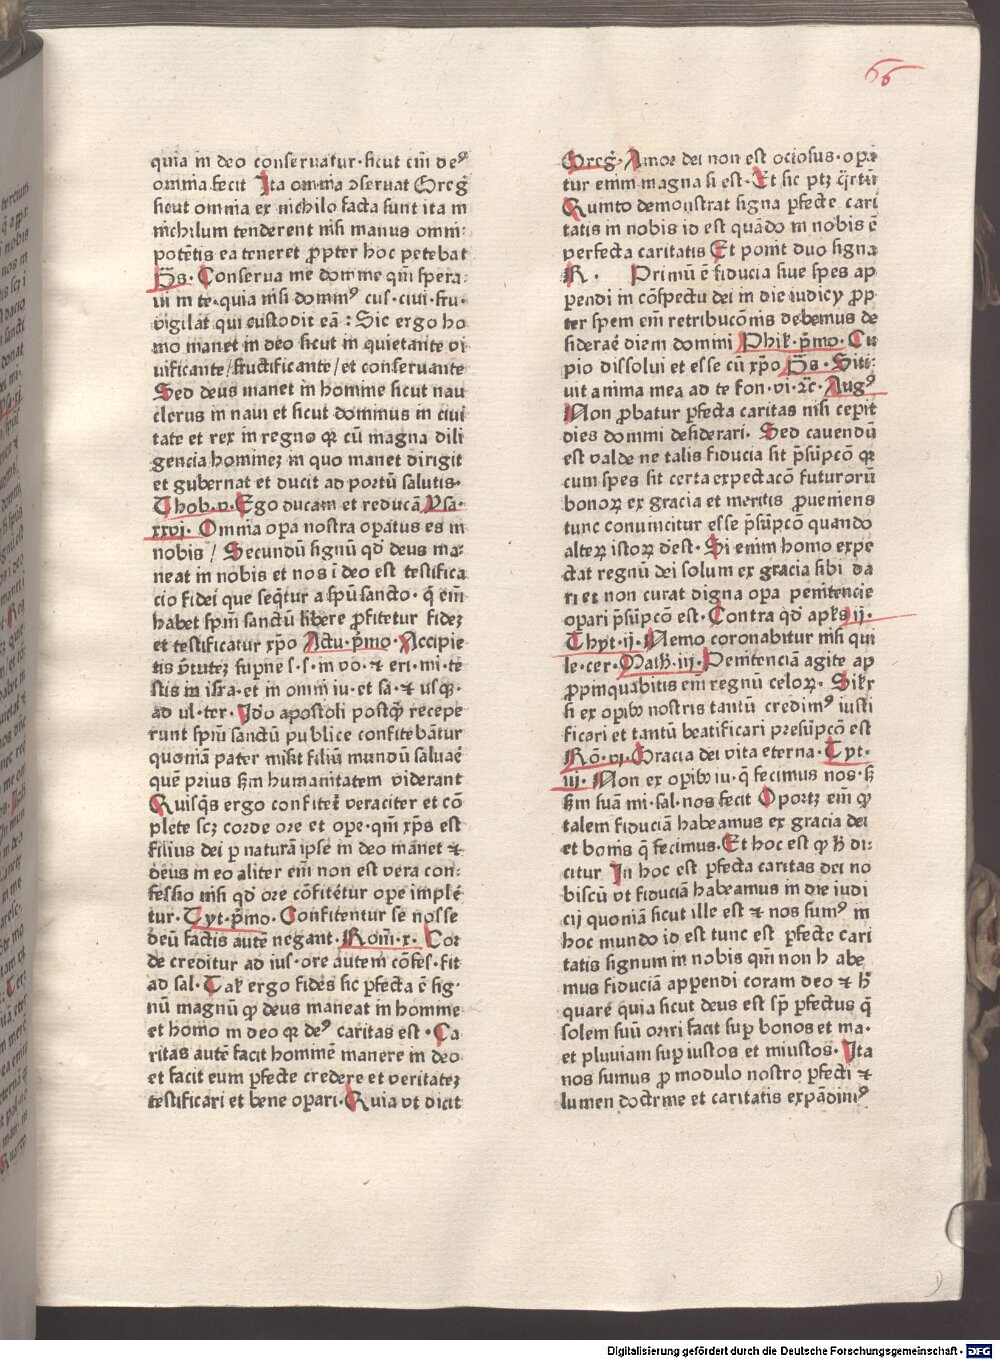 66
quia in deo conseruatur·sicut cm̄ deꝰ
omnia fecit Ita omnia ↄseruat Gregꝰ
sicut omnia ex nichilo facta sunt ita in
nichilum tenderent nisi manus omni-
potētis ea teneret ꝓpter hoc petebat
p̄s· Conserua me domine qm̄ spera-
ui in te·quia nisi dominꝰ cus·ciui·fru·
vigilat qui custodit eā : Sic ergo ho
mo manet in deo sicut in quietante vi
uificante/fructificante/et conseruante
Sed deus manet in homine sicut nau
clerus in naui et sicut dominus in ciui
tate et rex in regno qꝛ cū magna dili
gencia hominez in quo manet dirigit
et gubernat et ducit ad portū salutis·
Thob·v·Ego ducam et reducā Psa·
xxvj· Omnia opa nostra opatus es in
nobis / Secundū signū qd̄ deus ma-
neat in nobis et nos ī deo est testifica
cio fidei que seq̄tur a spū sancto· q̄ em̄
habet spm̄ sanctū libere ꝓfitetur fidez
et testificatur xp̄o Actu·p̄mo·Accipie
tis v̄tutez supue s·s·in vo·⁊ eri·mi·te
stis in isrl·a·et in omni iu·et sa·⁊ usqꝫ·
ad ul·ter·Ido apostoli postq̄ recepe
runt spm̄ sanctū publice confitebātur
quoniā pater misit filiū mundū saluaē
quē prius sꝫm humanitatem viderant
Quisq̄s ergo confitet̄ veraciter et cō
plete scꝫ corde ore et ope·qm̄ xp̄s est
filius dei p naturā ipse in deo manet ⁊
deus in eo aliter em̄ non est vera con-
fessio nisi qd̄ ore cōfitētur ope implē
tur·Tyt·p̄mo·Confitentur se nosse
deū factis autē negant·Rom̄·x· Cor
de creditur ad ius·ore autem cōfes·fit
ad sal·Talꝭ ergo fides sic pfecta ē sig-
nū magnū qꝫ deus maneat in homine
et homo in deo qꝛ deꝰ caritas est·Ca
ritas autē facit hominē manere in deo
et facit eum pfecte credere et veritatez
testificari et bene opari·Quia vt dicit
Gregꝰ·Amor dei non est ociosus·opa
tur enim magna si est·Et sic ptꝫ q̄rtū
Quinto demonstrat signa pfecte cari
tatis in nobis id est quādo in nobis ē
perfecta caritatis Et ponit duo signa
R· Primū ē fiducia siue spes ap
pendi in cōspectu dei in die iudicij ꝓp
ter spem em̄ retribucōnis debemus de
siderae diem domini Phil·p̄mo·Cu
pio dissolui et esse cū xp̄o p̄s·Siti-
uit anima mea ad te fon·vi·⁊c·Augꝰ
Non ꝓbatur pfecta caritas nisi ceperit
dies domini desiderari· Sed cauendū
est valde ne talis fiducia sit p̄sūpcō qꝛ
cum spes sit certa expectacō futurorū
bonoꝝ ex gracia et meritis ꝓueniens
tunc conuincitur esse p̄sūpcō quando
alteꝝ istoꝝ deest·Si enim homo expe
ctat regnū dei solum ex gracia sibi da
ri et non curat digna opa penitencie
opari p̄sūpcō est·Contra qd̄ apl̄s ij·
Thyt·ij·Nemo coronabitur nisi qui
le·cer·Math·iij·Penitenciā agite ap
ꝓpinquabitis em̄ regnū celoꝝ·Silꝛ
si ex opibꝰ nostris tantū credimꝰ iusti
ficari et tantū beatificari presūpcō est
Rō·vj·Gracia dei vita eterna·Tyt·
iij·Non ex opibꝰ iu·q̄ fecimus nos·sꝫ
sꝫm suā mi·sal·nos fecit Oportꝫ em̄ qꝫ
talem fiduciā habeamus ex gracia dei
et bonis q̄ fecimus·Et hoc est qꝫ h̄ di-
citur In hoc est pfecta caritas dei no
biscū vt fiduciā habeamus in die iudi
cij quoniā sicut ille est ⁊ nos sumꝰ in
hoc mundo id est tunc est pfecte cari
tatis signum in nobis qm̄ non habe
mus fiduciā appendi coram deo ⁊ h̄
quare quia sicut deus est sp̄ pfectus q̄
solem suū oriri facit sup bonos et ma·
et pluuiam sup iustos et iniustos·Ita
nos sumus ꝓ modulo nostro pfecti ⁊
lumen doctrine et caritatis expādimꝰ
Digitalisierung gefördert durch die Deutsche Forschungsgemeinschaft - DFG